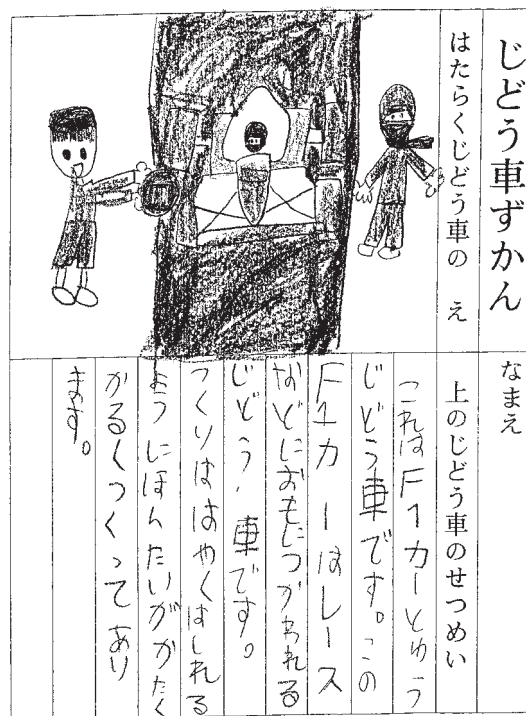 じどう車ずかん
はたらくじどう車の　え
なまえ
上のじどう車のせつめい
これはF1カーとゆう
じどう車です。この
F1カーはレース
などにおもにつかわれる
じどう、車です。
つくりははやくはしれる
ようにほんたいががたく
かるくつくってあり
ます。